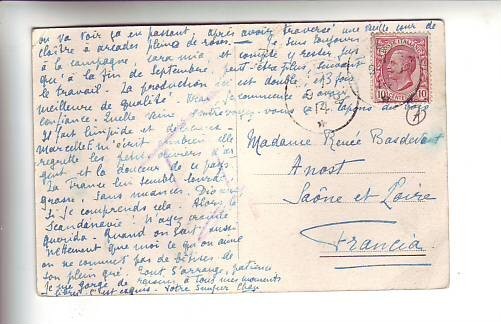 on va voir ça en passant, après avoir traversé une vieille cour de
cloître à arcades pleine de roses — Je suis toujours
à la campagne, cara mia et compte y rester jus
qu'à la fin de Septembre, peut-être plus, suivant
le travail. La production ici est double, et 3 fois
meilleure de qualité. Vrai, je commence à avoir
confiance. Quelle veine
Il fait limpide et délicieux —
Marcelle m'écrit combien elle
regrette les petits oliviers d'ar
gent et la douceur de ce pays.
La France lui semble lourde,
grosse, sans nuances. Dio mio
Si je comprends cela. Alors, la
Scandinavie? N'ayez crainte
querida. Quand on sait aussi
nettement que moi ce qu'on aime
on ne connaît pas de bornes de
son plein gré. Tout s'arrange, patience
Je me gorge de raisins à tous mes moments
libres. C'est exquis. Votre
POSTE ITALIANE
10
CENTESIMI
10
14
Madame Renée Basdevant
Anost
Saône et Loire
Francia